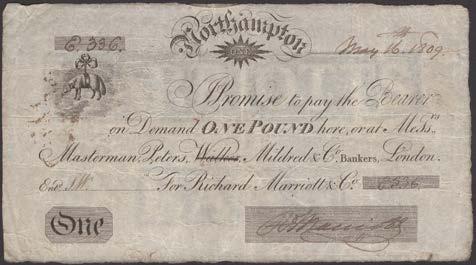 Northampton
C.336. ONE May 16th 1809.
I Promise to pay the Bearer
on Demand ONE POUND here, or at Messrs
Masterman, Peters, Walker, Mildred & Co. Bankers, London.
Entd. J.W. For Richard Marriott & Co. C336
One Rd Marriott